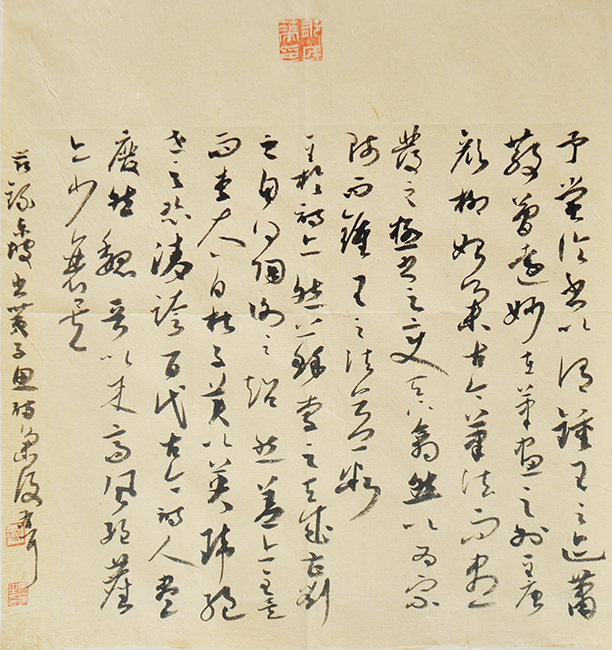 予嘗論書以謂鍾王之迹蕭
散簡遠妙在筆畫之外至唐
顏柳始集古今筆法而盡
發之極書之變天下翕然以為宗
師而鍾王之法益微
至於詩亦然蘇李之天成曹劉
之自得陶謝之超然蓋亦至矣
而李太白杜子美以英瑋絕
世之姿凌跨百代古今詩人盡
廢然魏晉以來高風絕塵
亦少衰矣
節錄東坡書黃子思詩集後